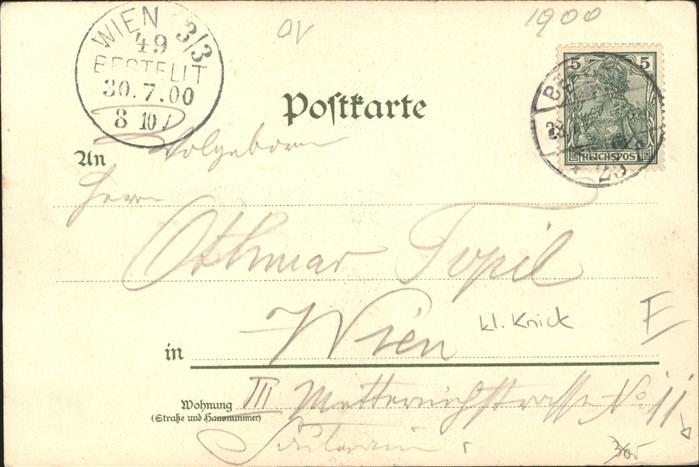 WIEN 3/3
49
BESTELLT
30.7.00
8 10 V
OV
1900
5 5
REICHSPOST
25
Postkarte
An Wolgeboren
Herrn
Othmar Topil
in Wien
kl. Knick
F
Wohnung III Metternichstrasse No 11
(Straße und Hausnummer)